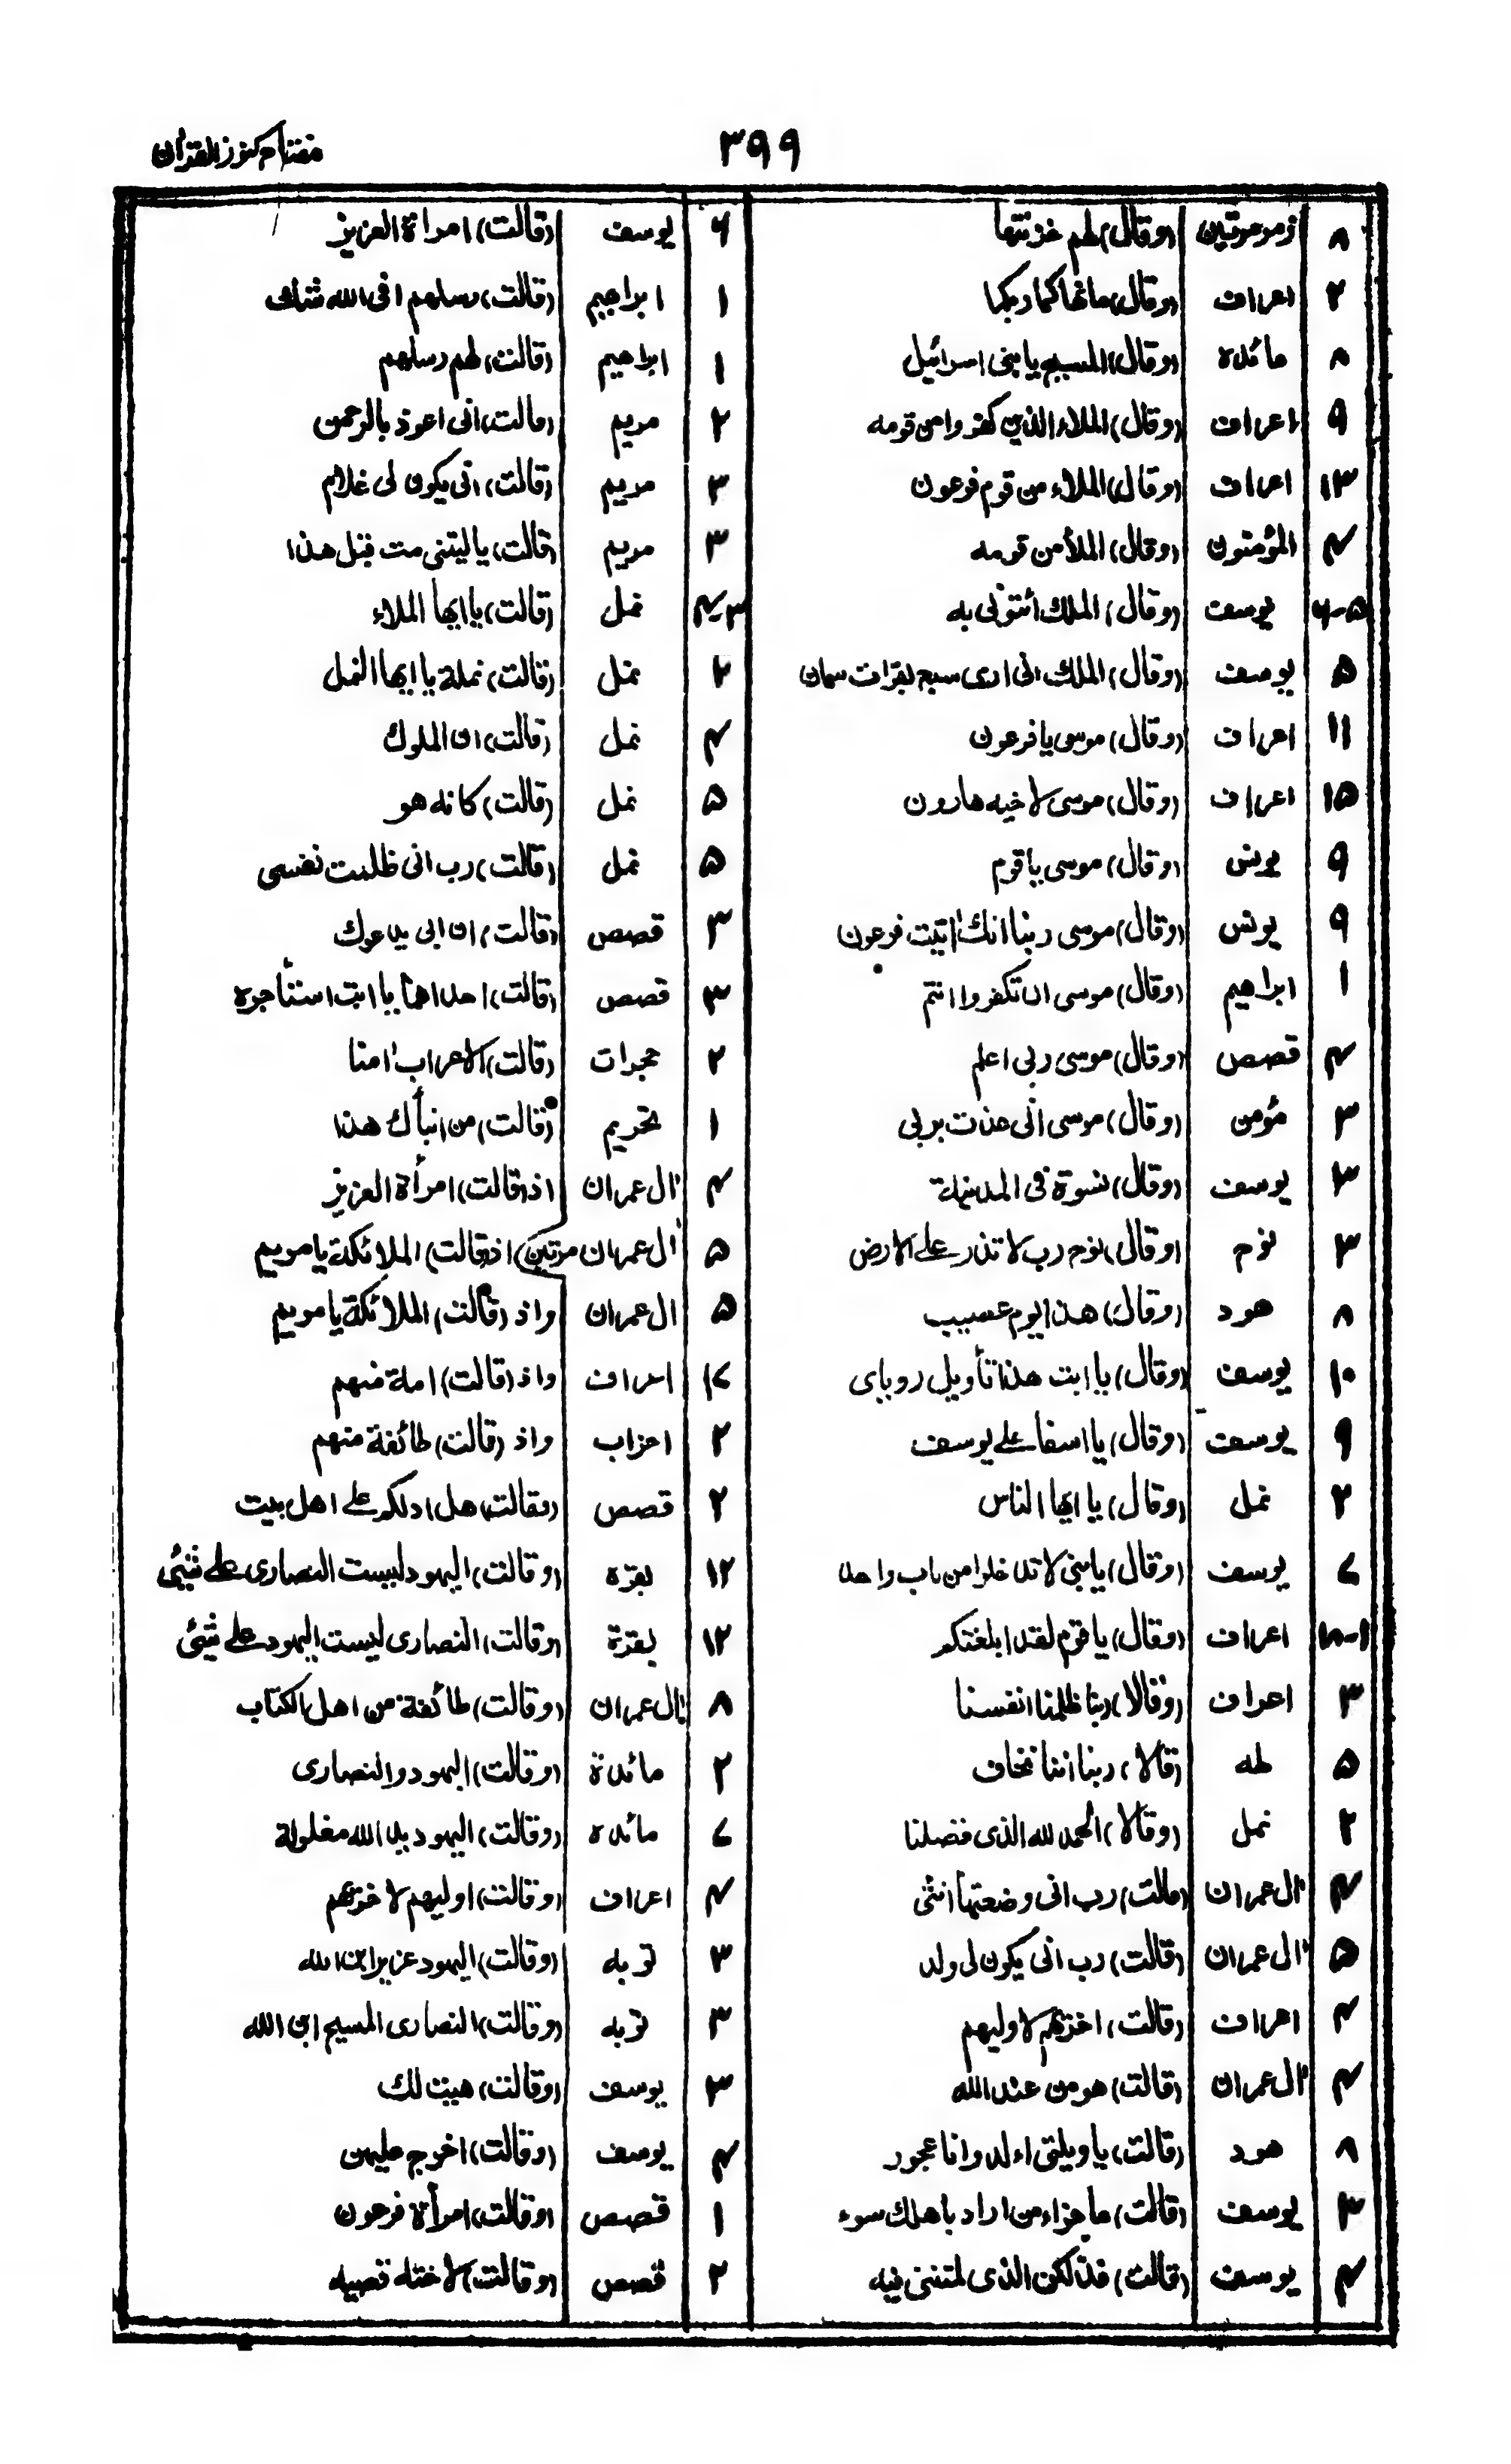 ۳۹۹
مفتاح کنوز القران
۸ زمر مرتین (وقال) لهم خزنتها
۲ اعراف (وقال) مانهاکما ربکما
۸ مائده (وقال) المسیح یا بنی اسرائیل
۹ اعراف (وقال) الملاء الذین کفروا من قومه
۱۳ اعراف (وقال) الملاء من قوم فرعون
۴ المؤمنون (وقال) الملأ من قومه
۵-۶ یوسف (وقال) الملک ائتونی به
۵ یوسف (وقال) الملک انی اری سبع بقرات سمان
۱۱ اعراف (وقال) موسی یا فرعون
۱۵ اعراف (وقال) موسی لاخیه هارون
۹ یونس (وقال) موسی یا قوم
۹ یونس (وقال) موسی ربنا انک اتیت فرعون
۱ ابراهیم (وقال) موسی ان تکفروا انتم
۴ قصص (وقال) موسی ربی اعلم
۳ مؤمن (وقال) موسی انی عذت بربی
۳ یوسف (وقال) نسوة فی المدینة
۳ نوح (وقال) نوح رب لا تذر علی الارض
۸ هود (وقال) هذا یوم عصیب
۱۰ یوسف (وقال) یا ابت هذا تأویل رویای
۹ یوسف (وقال) یا اسفا علی یوسف
۲ نمل (وقال) یا ایها الناس
۷ یوسف (وقال) یا بنی لا تدخلوا من باب واحد
۸-۱ اعراف (وقال) یا قوم لقد ابلغتکم
۳ اعراف (وقالا) ربنا ظلمنا انفسنا
۵ طه (قالا) ربنا اننا نخاف
۲ نمل (وقالا) الحمد لله الذی فضلنا
۴ ال عمران (قالت) رب انی وضعتها انثی
۵ ال عمران (قالت) رب انی یکون لی ولد
۴ اعراف (قالت) اخرهم لاولیهم
۴ ال عمران (قالت) هو من عند الله
۸ هود (قالت) یا ویلتی ءالد وانا عجوز
۳ یوسف (قالت) ما جزاء من اراد باهلک سوء
۴ یوسف (قالت) فذلکن الذی لمتننی فیه
۶ یوسف (قالت) امراة العزیز
۱ ابراهیم (قالت) رسلهم افی الله شک
۱ ابراهیم (قالت) لهم رسلهم
۲ مریم (قالت) انی اعوذ بالرحمن
۳ مریم (قالت) انی یکون لی غلام
۳ مریم (قالت) یا لیتنی مت قبل هذا
۳-۴ نمل (قالت) یا ایها الملاء
۲ نمل (قالت) نملة یا ایها النمل
۴ نمل (قالت) ان الملوک
۵ نمل (قالت) کانه هو
۵ نمل (قالت) رب انی ظلمت نفسی
۳ قصص (قالت) ان ابی یدعوک
۳ قصص (قالت) احداهما یا ابت استأجره
۲ حجرات (قالت) الاعراب امنا
۱ تحریم (قالت) من انبأک هذا
۴ ال عمران اذ (قالت) امرأة العزیز
۵ ال عمران مرتین اذ (قالت) الملائکة یا مریم
۵ ال عمران واذ (قالت) الملائکة یا مریم
۱۷ اعراف واذ (قالت) امة منهم
۲ احزاب واذ (قالت) طائفة منهم
۲ قصص (فقالت) هل ادلکم علی اهل بیت
۱۲ بقره (وقالت) الیهود لیست النصاری علی شیئی
۱۲ بقرة (وقالت) النصاری لیست الیهود علی شیئی
۸ ال عمران (وقالت) طائفة من اهل الکتاب
۲ مائدة (وقالت) الیهود والنصاری
۷ مائده (وقالت) الیهود ید الله مغلولة
۴ اعراف (وقالت) اولیهم لاخریهم
۳ توبه (وقالت) الیهود عزیر ابن الله
۳ توبه (وقالت) النصاری المسیح ابن الله
۳ یوسف (وقالت) هیت لک
۴ یوسف (وقالت) اخرج علیهن
۱ قصص (وقالت) امرأة فرعون
۲ قصص (وقالت) لاخته قصیه